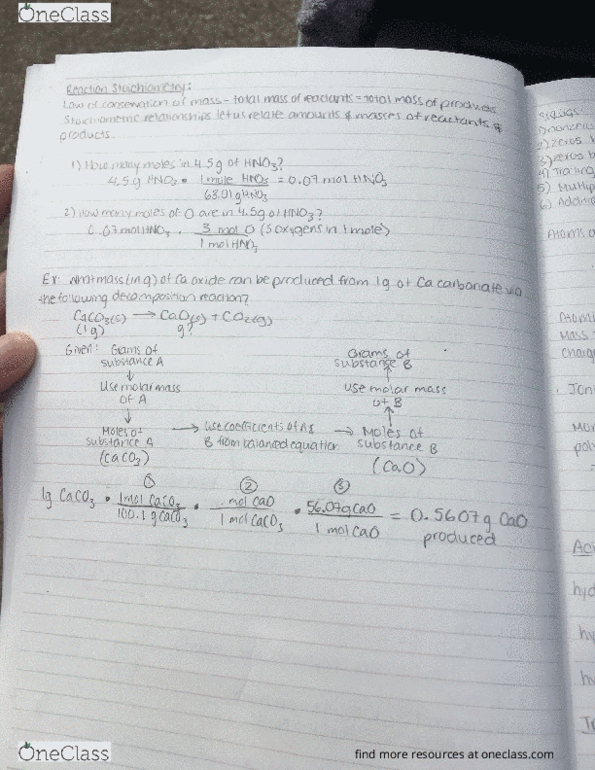 OneClass
Reaction Stoichiometry:
Law of conservation of mass = total mass of reactants = total mass of products
Stoichiometric relationships let us relate amounts & masses of reactants &
products.
1) How many moles in 4.5g of HNO3?
4.5g HNO3 • 1 mole HNO3 / 63.01g HNO3 = 0.07 mol HNO3
2) How many moles of O are in 4.5g of HNO3?
0.07 mol HNO3 • 3 mol O / 1 mol HNO3 (3 oxygens in 1 mole)
Ex: What mass (in g) of Ca oxide can be produced from 1g of Ca carbonate via
the following decomposition reaction?
CaCO3(s) → CaO(s) + CO2(g)
(1g) g?
Given: Grams of substance A
↓
Use molar mass of A
↓
Moles of substance A
(CaCO3)
→ use coefficients of A & B from balanced equation →
Moles of substance B
(CaO)
↑
use molar mass of B
↑
Grams of substance B
① ② ③
1g CaCO3 • 1mol CaCO3 / 100.1g CaCO3 • mol CaO / 1 mol CaCO3 • 56.07g CaO / 1 mol CaO = 0.5607g CaO
produced
2) zeros
3) zeros
6)
Atoms
Mass
charg
Aci
hyd
hy
OneClass
find more resources at oneclass.com